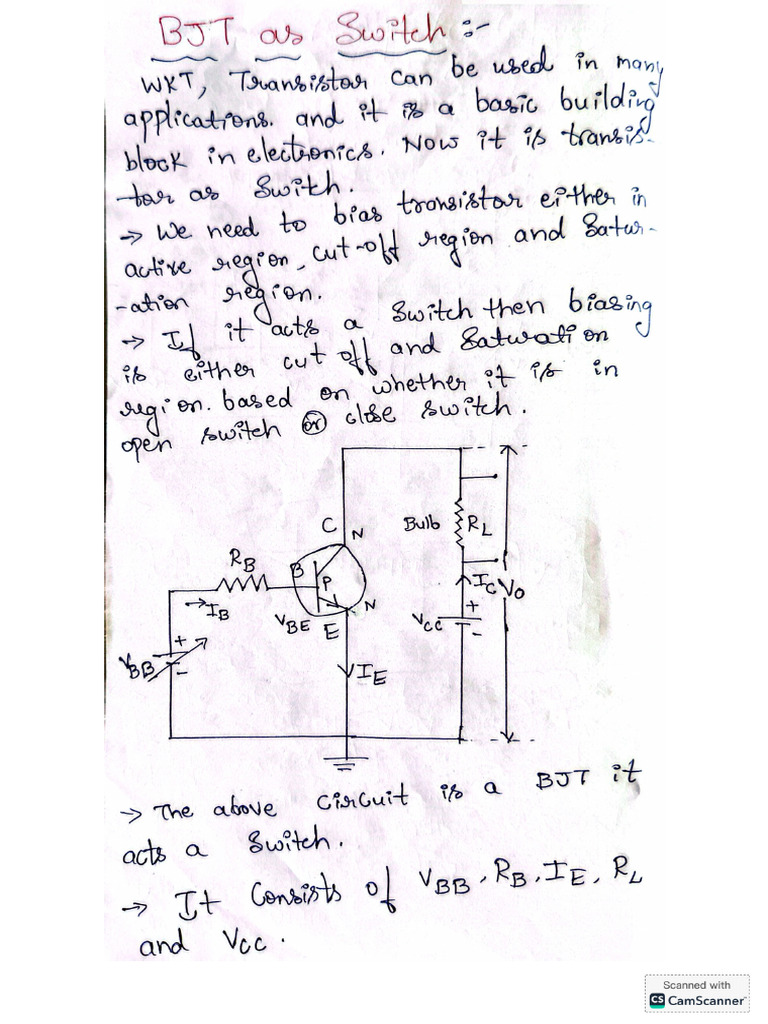 BJT as Switch :-
WKT, Transistor can be used in many
applications. and it is a basic building
block in electronics. Now it is transis-
-tor as Switch.
→ We need to bias transistor either in
active region, cut-off region and Satur-
-ation region.
→ If it acts a Switch then biasing
is either cut off and Saturation
region. based on whether it is in
open switch or close switch.
C N Bulb RL
RB B P N
IB VBE E VCC + - IC Vo
VBB + - IE
→ The above circuit is a BJT it
acts a Switch.
→ It Consists of VBB, RB, IE, RL
and VCC.
Scanned with
CS CamScanner